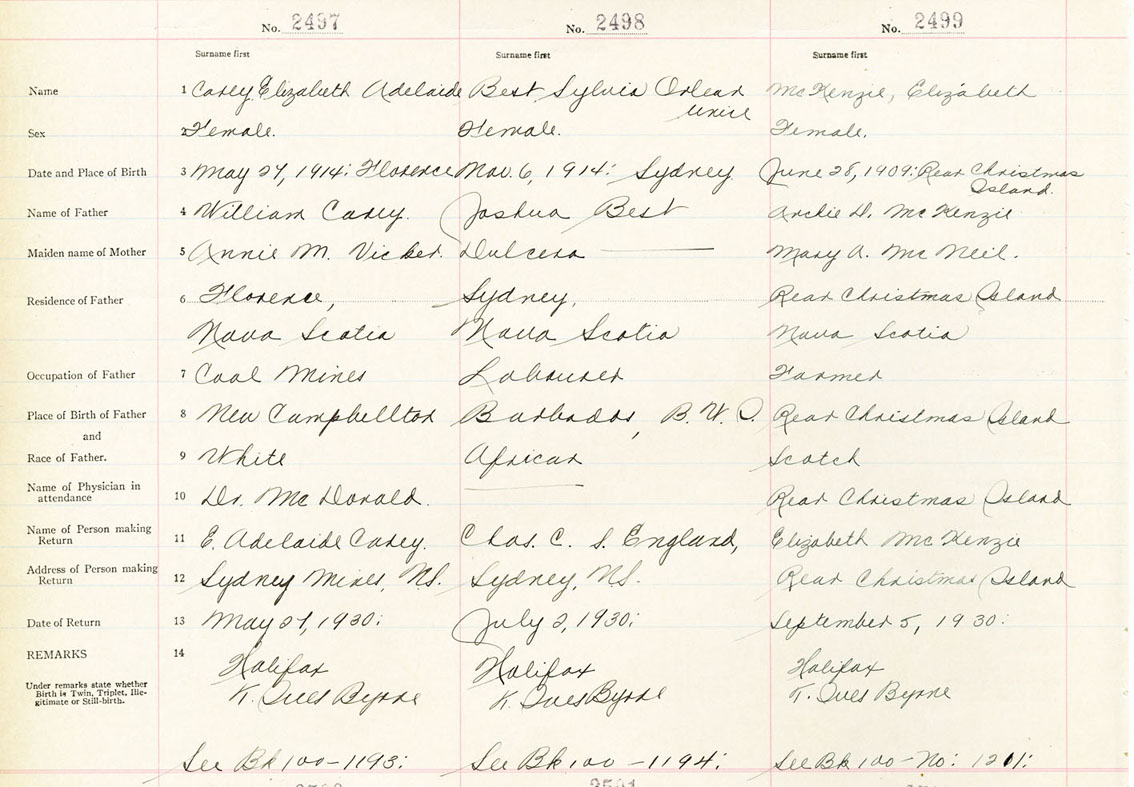 No. 2497 No. 2498 No. 2499
Surname first Surname first Surname first
Name 1 Carey Elizabeth Adelaide Best Sylvia Orlean McKenzie, Elizabeth
Unice
Sex 2 Female. Female. Female.
Date and Place of Birth 3 May 27, 1914: Florence Nov. 6, 1914: Sydney June 28, 1909: Rear Christmas
Island.
Name of Father 4 William Carey. Joshua Best Archie D. McKenzie
Maiden name of Mother 5 Annie M. Vicker. Dulcera Mary A. McNeil.
Residence of Father 6 Florence, Sydney, Rear Christmas Island
Nova Scotia Nova Scotia Nova Scotia
Occupation of Father 7 Coal Mines Labourer Farmer
Place of Birth of Father 8 New Campbellton Barbados, B. W. I. Rear Christmas Island
and
Race of Father. 9 White African Scotch
Name of Physician in
attendance 10 Dr. McDonald. Rear Christmas Island
Name of Person making
Return 11 E. Adelaide Carey. Chas. C. S. England, Elizabeth McKenzie
Address of Person making
Return 12 Sydney Mines, N.S. Sydney, N.S. Rear Christmas Island
Date of Return 13 May 21, 1930: July 2, 1930: September 5, 1930:
REMARKS 14
Halifax Halifax Halifax
Under remarks state whether
Birth is Twin, Triplet, Ille-
gitimate or Still-birth.
K. Ives Byrne K. Ives Byrne K. Ives Byrne
See Bk 100-1193: See Bk 100-1194: See Bk 100-No: 1201: